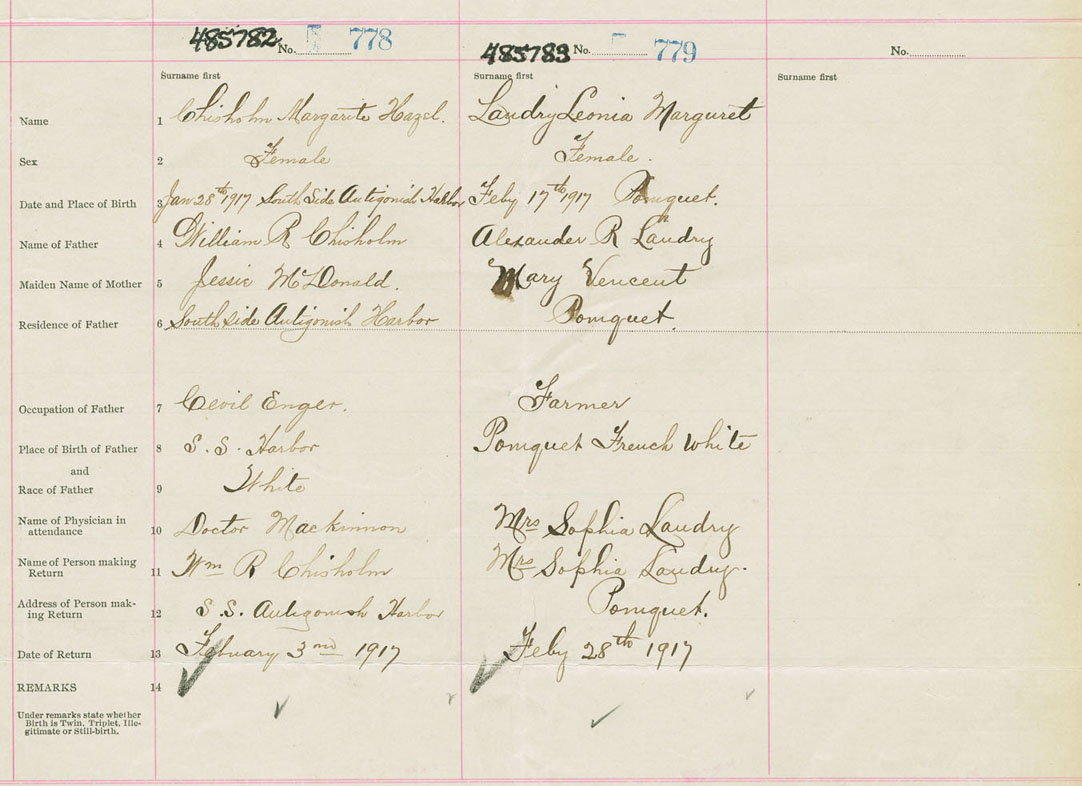 485782 No. 778 485783 No. 779 No.
Surname first Surname first Surname first
Name 1 Chisholm Margarite Hazel. Landry Leonia Marguret
Sex 2 Female Female.
Date and Place of Birth 3 Jan 28th 1917 South Side Antigonish Harbor Feby 17th 1917 Pomquet.
Name of Father 4 William R Chisholm Alexander R Landry
Maiden Name of Mother 5 Jessie McDonald. Mary Vencent
Residence of Father 6 South side Antigonish Harbor Pomquet.
Occupation of Father 7 Cevil Enger. Farmer
Place of Birth of Father 8 S. S. Harbor Pomquet French White
and
Race of Father 9 White
Name of Physician in
attendance 10 Doctor Mackinnon Mrs Sophia Landry
Name of Person making
Return 11 Wm R Chisholm Mrs Sophia Landry.
Address of Person mak-
ing Return 12 S.S. Antigonish Harbor Pomquet.
Date of Return 13 February 3rd 1917 Feby 28th 1917
REMARKS 14
Under remarks state whether
Birth is Twin, Triplet, Ille-
gitimate or Still-birth.